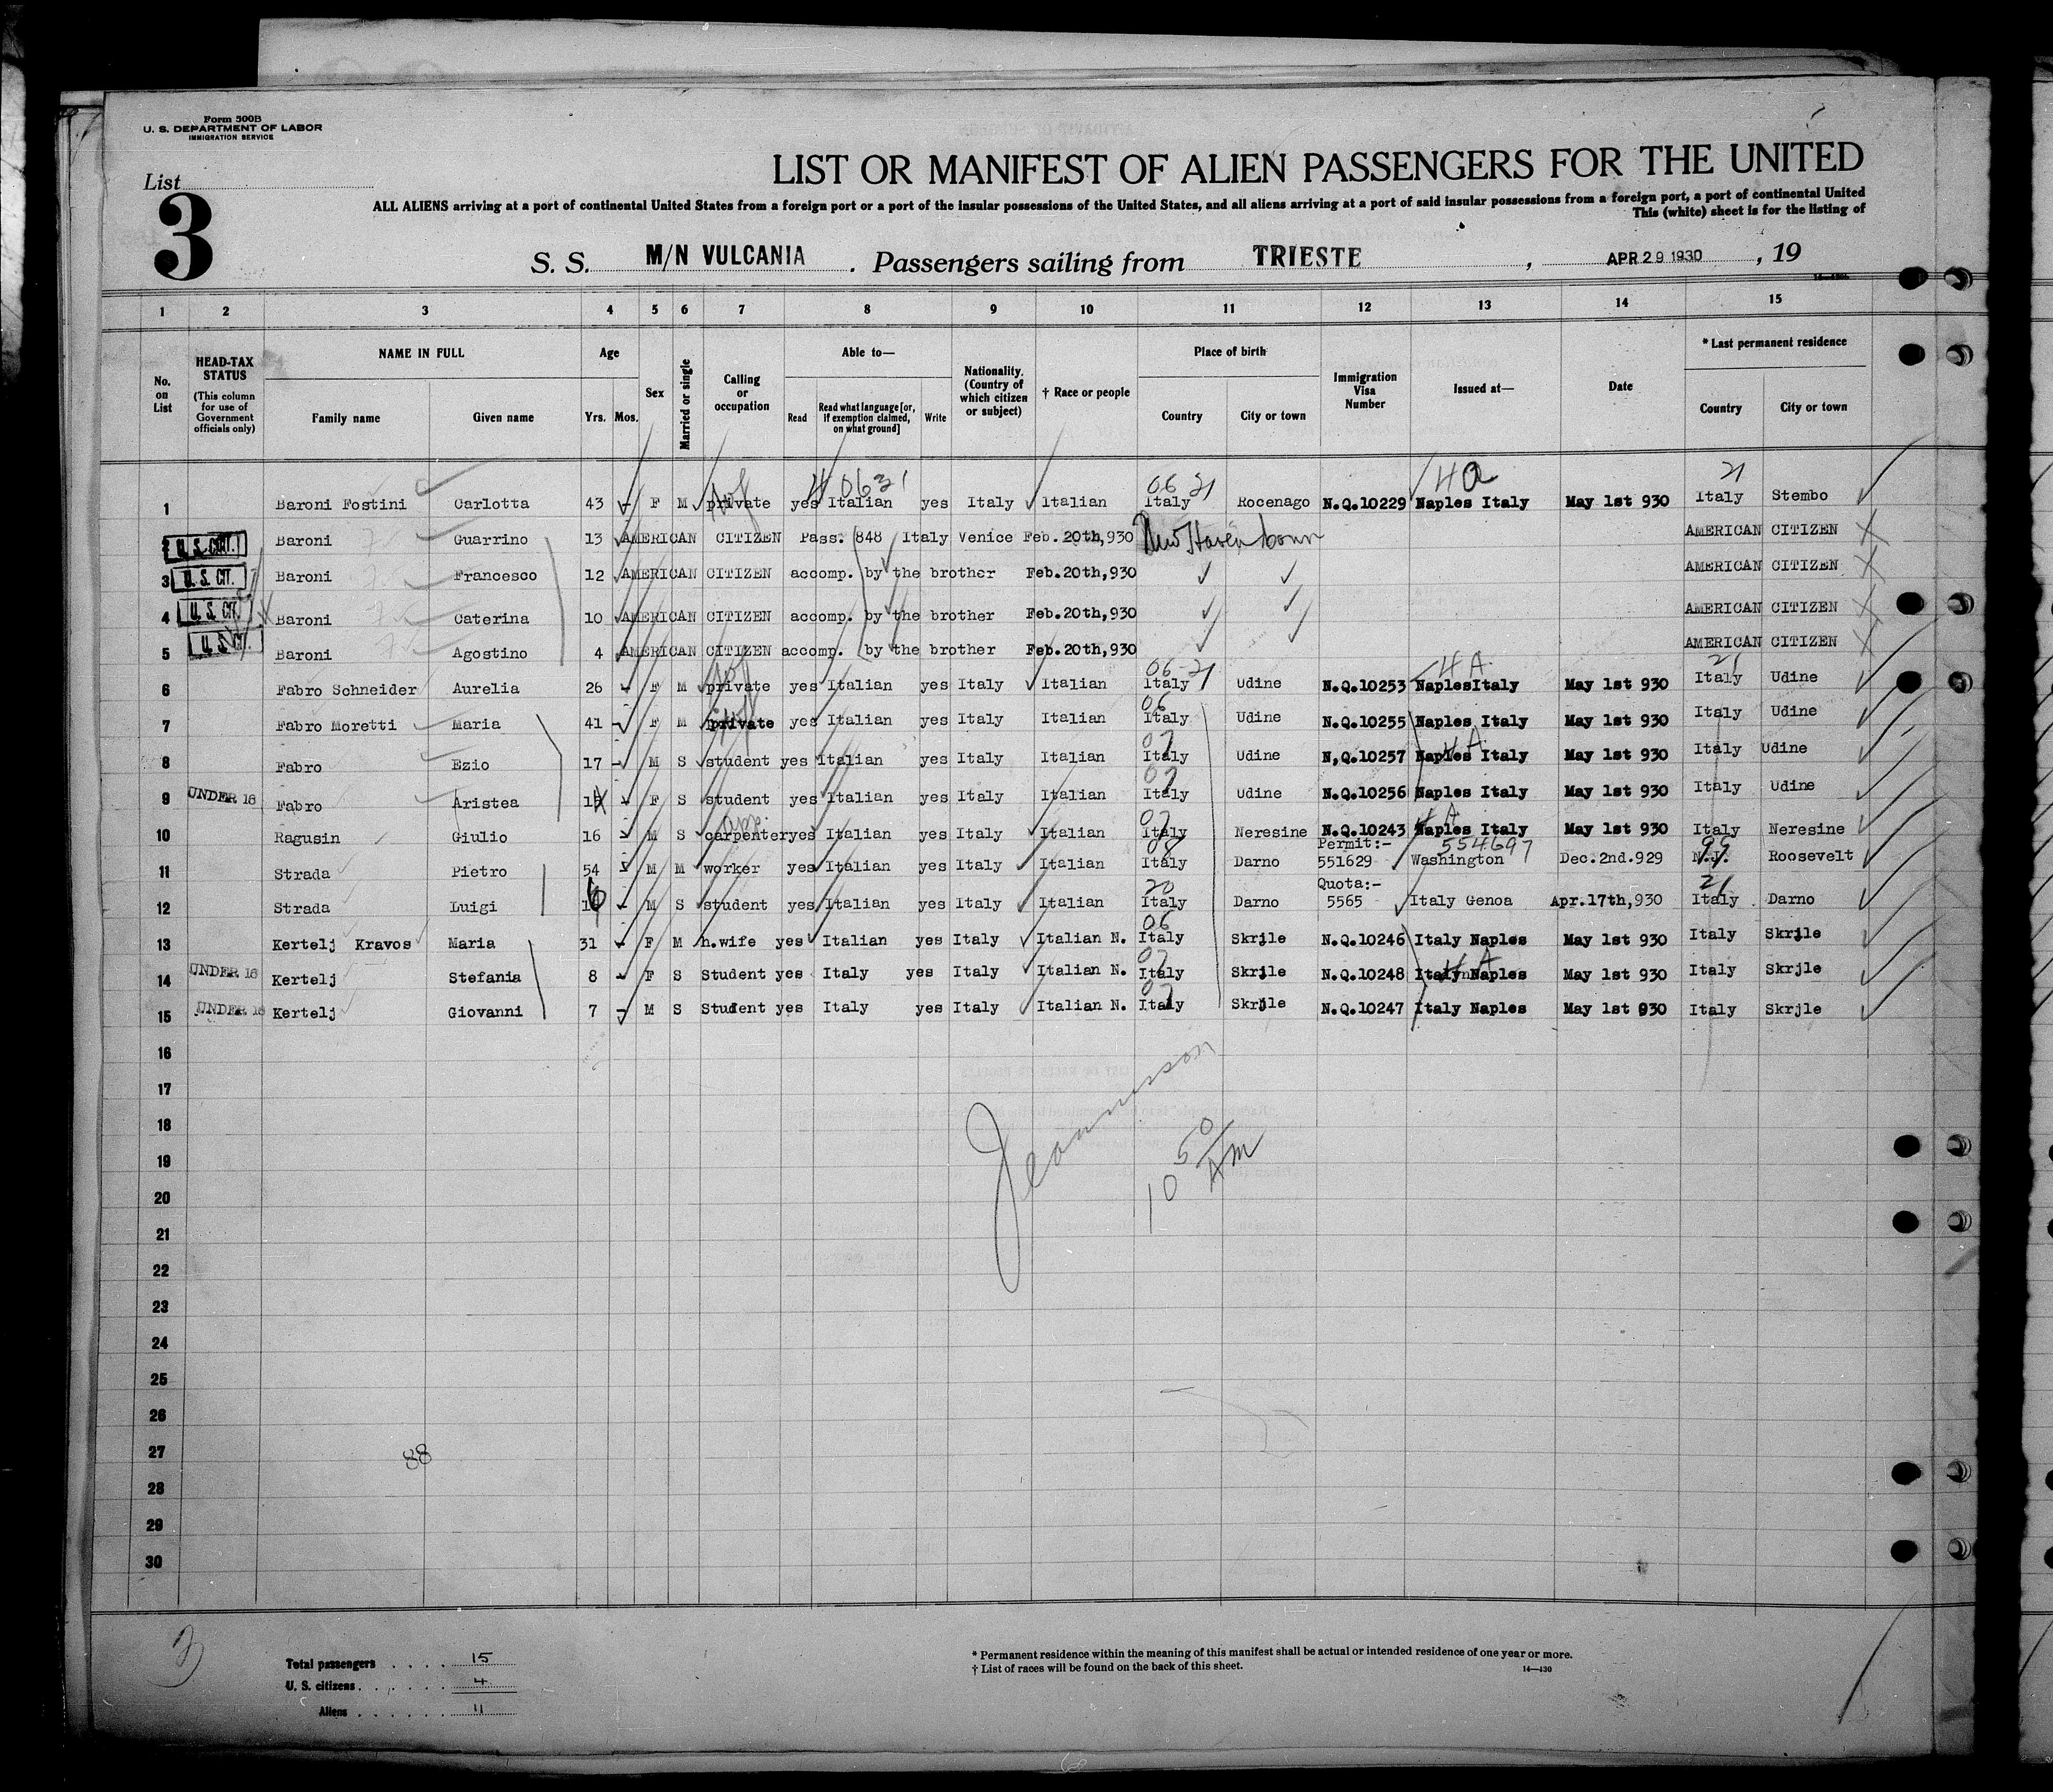 Form 500B
U. S. DEPARTMENT OF LABOR
IMMIGRATION SERVICE
List
3
LIST OR MANIFEST OF ALIEN PASSENGERS FOR THE UNITED
ALL ALIENS arriving at a port of continental United States from a foreign port or a port of the insular possessions of the United States, and all aliens arriving at a port of said insular possessions from a foreign port, a port of continental United
This (white) sheet is for the listing of
S. S. M/N VULCANIA . Passengers sailing from TRIESTE , APR 29 1930 , 19
1 2 3 4 5 6 7 8 9 10 11 12 13 14 15
No. on List
HEAD-TAX STATUS (This column for use of Government officials only)
NAME IN FULL
Family name Given name
Age
Yrs. Mos.
Sex
Married or single
Calling or occupation
Able to—
Read Read what language [or, if exemption claimed, on what ground] Write
Nationality. (Country of which citizen or subject)
† Race or people
Place of birth
Country City or town
Immigration Visa Number
Issued at—
Date
* Last permanent residence
Country City or town
4 0631 06 21 4A 21
1 Baroni Fostini Carlotta 43 - F M private yes Italian yes Italy Italian Italy Rocenago N.Q.10229 Naples Italy May 1st 930 Italy Stembo
2 U. S. CIT. Baroni Guarrino 13 AMERICAN CITIZEN Pass. 848 Italy Venice Feb. 20th,930 New Haven born AMERICAN CITIZEN
3 U. S. CIT. Baroni Francesco 12 AMERICAN CITIZEN accomp. by the brother Feb.20th,930 AMERICAN CITIZEN
4 U. S. CIT. Baroni Caterina 10 AMERICAN CITIZEN accomp. by the brother Feb.20th,930 AMERICAN CITIZEN
5 U. S. CIT. Baroni Agostino 4 AMERICAN CITIZEN accomp. by the brother Feb.20th,930 AMERICAN CITIZEN
06-21 4A. 21
6 Fabro Schneider Aurelia 26 - F M private yes Italian yes Italy Italian Italy Udine N.Q.10253 NaplesItaly May 1st 930 Italy Udine
06
7 Fabro Moretti Maria 41 - F M private yes Italian yes Italy Italian Italy Udine N.Q.10255 Naples Italy May 1st 930 Italy Udine
07 4A
8 Fabro Ezio 17 - M S student yes Italian yes Italy Italian Italy Udine N,Q.10257 Naples Italy May 1st 930 Italy Udine
07
9 UNDER 16 Fabro Aristea - F S student yes Italian yes Italy Italian Italy Udine N.Q.10256 Naples Italy May 1st 930 Italy Udine
app. 07 4A
10 Ragusin Giulio 16 - M S carpenter yes Italian yes Italy Italian Italy Neresine N.Q.10243 Naples Italy May 1st 930 Italy Neresine
08 Permit:- 554697 99
11 Strada Pietro 54 - M M worker yes Italian yes Italy Italian Italy Darno 551629 Washington Dec.2nd.929 N.J. Roosevelt
20 Quota:- 21
12 Strada Luigi 16 - M S student yes Italian yes Italy Italian Italy Darno 5565 Italy Genoa Apr.17th,930 Italy Darno
06
13 Kertelj Kravos Maria 31 - F M h.wife yes Italian yes Italy Italian N. Italy Skrjle N.Q.10246 Italy Naples May 1st 930 Italy Skrjle
07 4A
14 UNDER 16 Kertelj Stefania 8 - F S Student yes Italy yes Italy Italian N. Italy Skrjle N.Q.10248 Italy Naples May 1st 930 Italy Skrjle
07
15 UNDER 16 Kertelj Giovanni 7 - M S Student yes Italy yes Italy Italian N. Italy Skrjle N.Q.10247 Italy Naples May 1st 930 Italy Skrjle
16
17
18
19
20
21
22
23
24
25
26
27
28
29
30
10 50 AM
88
3
Total passengers . . . . 15
U. S. citizens . . . . . . 4
Aliens . . . . . . 11
* Permanent residence within the meaning of this manifest shall be actual or intended residence of one year or more.
† List of races will be found on the back of this sheet.
14—430